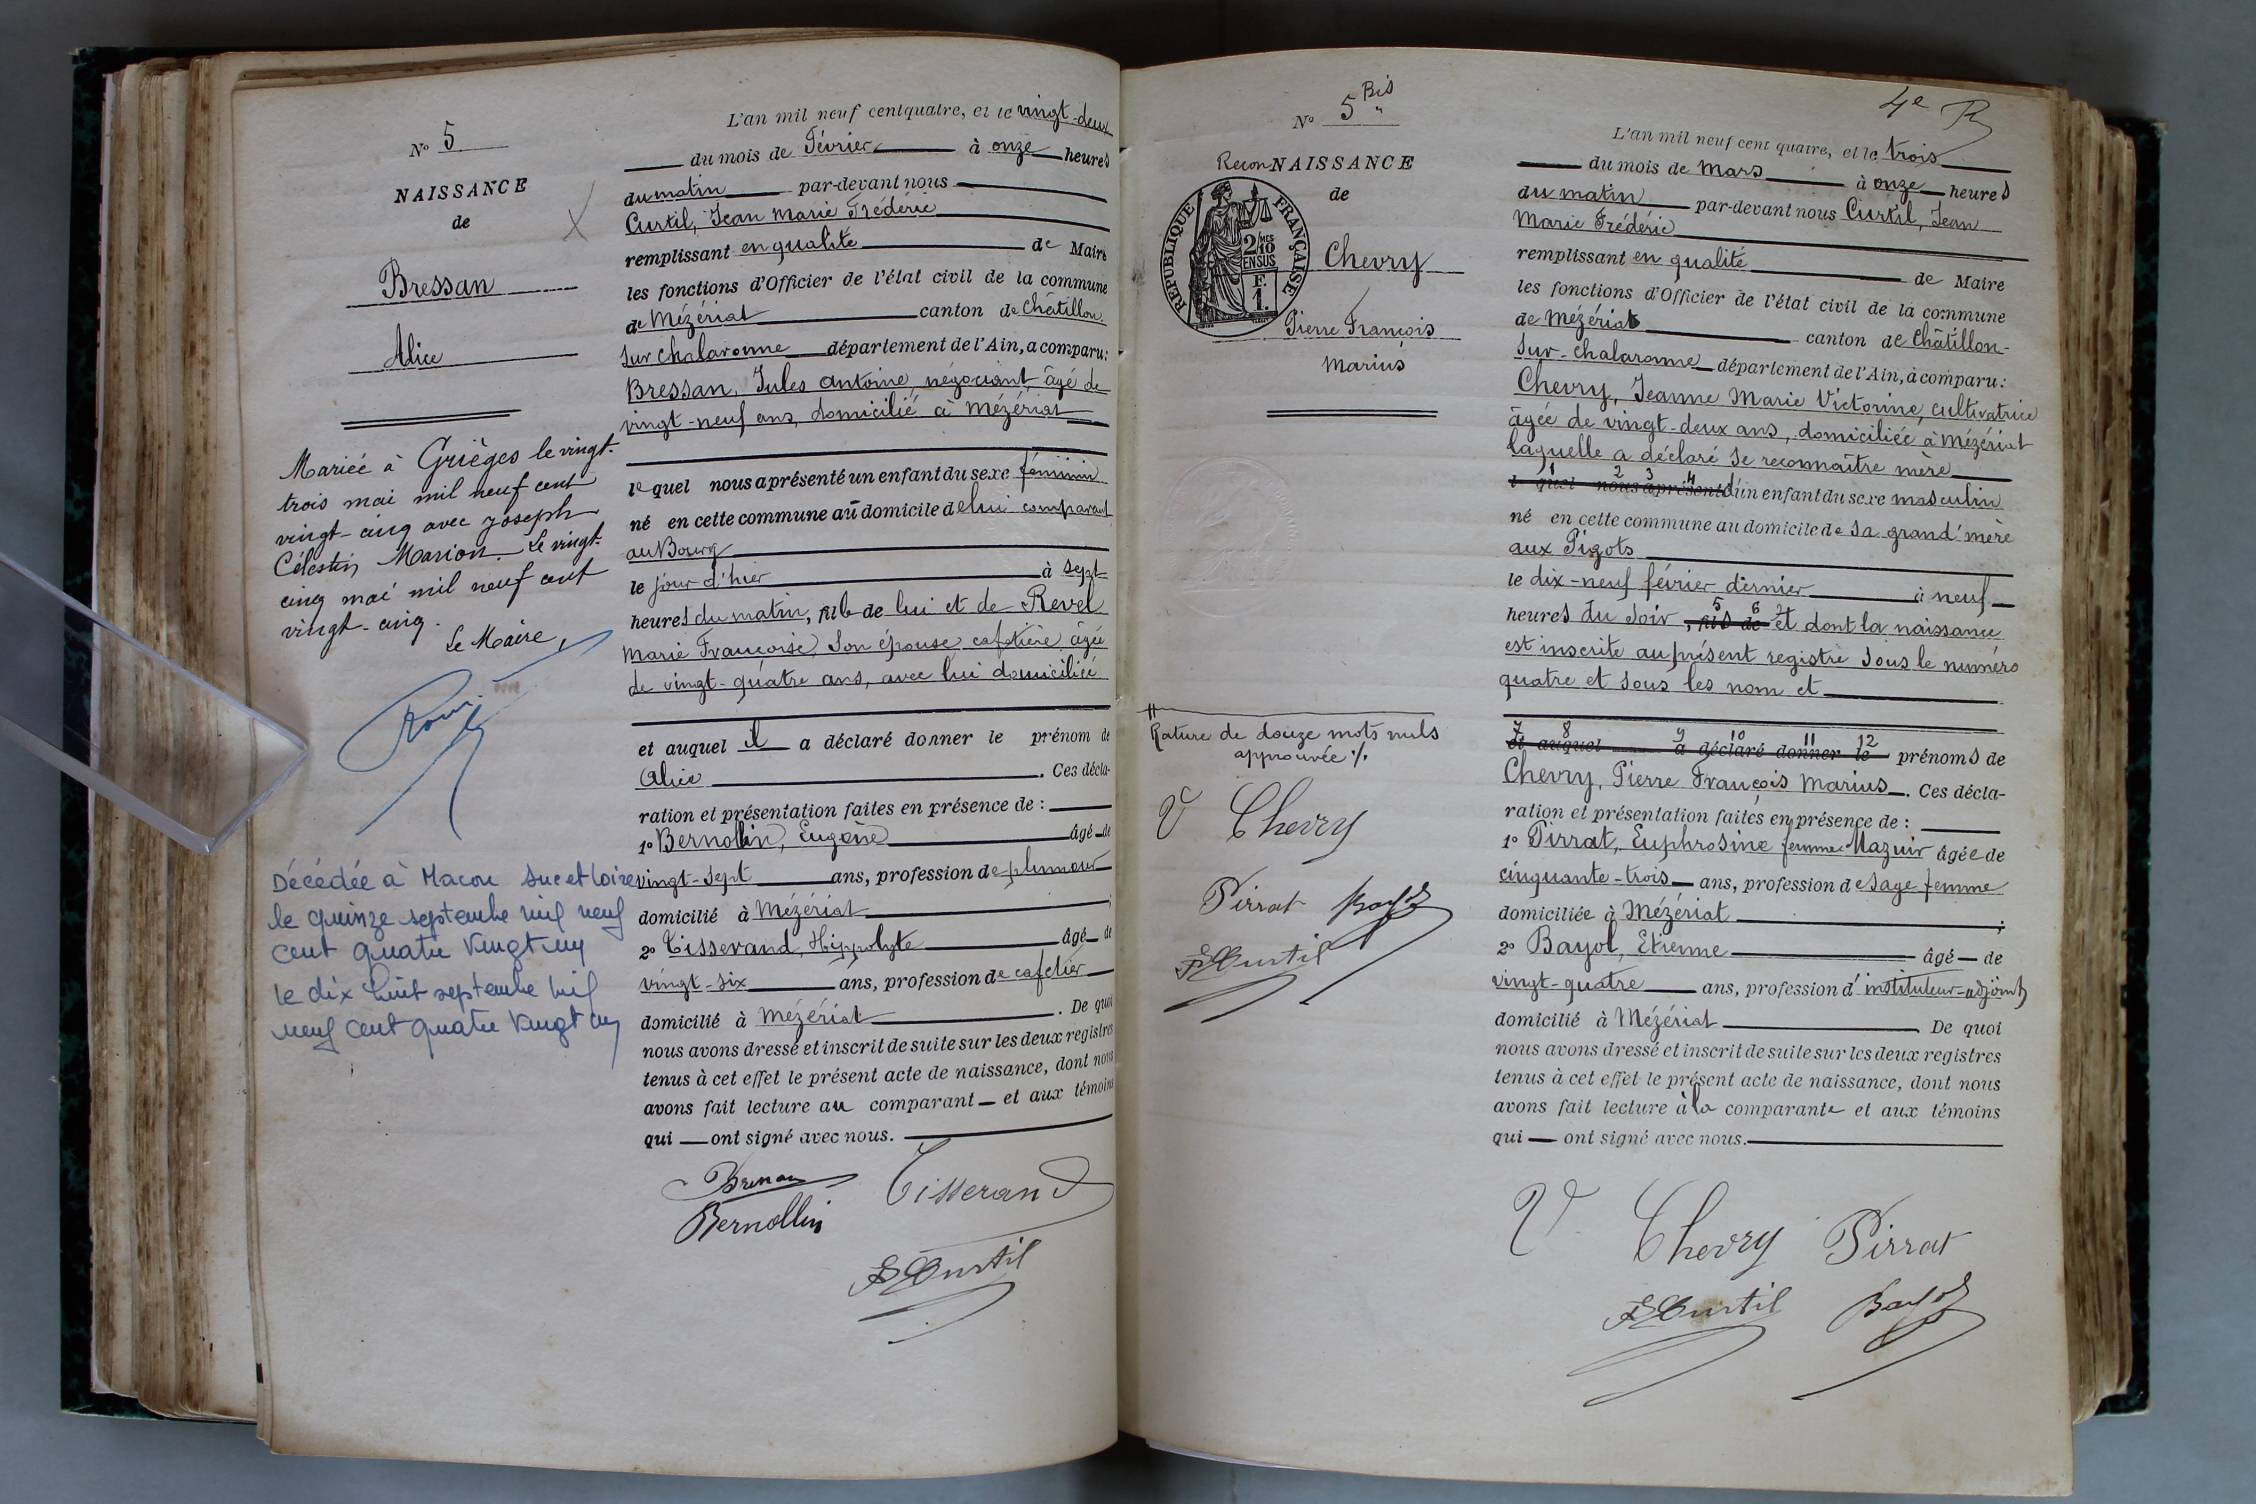 N° 5
NAISSANCE
de
Bressan
Alice
Mariée à Grièges le vingt-
trois mai mil neuf cent
vingt-cinq avec Joseph
Célestin Marion. Le vingt-
cinq mai mil neuf cent
vingt-cinq.
Le Maire,
Décédée à Macon Sne et Loire
le quinze septembre mil neuf
cent quatre vingt un
le dix huit septembre mil
neuf cent quatre vingt un
L'an mil neuf cent quatre, et le vingt-deux
du mois de Février à onze heures
du matin par-devant nous
Curtil, Jean Marie Frédéric
remplissant en qualité de Maire
les fonctions d'Officier de l'état civil de la commune
de Mézériat canton de Châtillon-
sur Chalaronne département de l'Ain, a comparu:
Bressan, Jules Antoine, négociant, âgé de
vingt-neuf ans, domicilié à Mézériat
lequel nous a présenté un enfant du sexe féminin
né en cette commune au domicile de lui comparant
au Bourg
le jour d'hier à sept
heures du matin, fille de lui et de Revel
Marie Françoise, son épouse, cafetière, âgée
de vingt-quatre ans, avec lui domiciliée
et auquel il a déclaré donner le prénom de
Alice. Ces décla-
ration et présentation faites en présence de:
1° Bernollin, Eugène âgé de
vingt-sept ans, profession de
domicilié à Mézériat;
2° Tisserand, Hippolyte âgé de
vingt-six ans, profession de cafetier
domicilié à Mézériat. De quoi
nous avons dressé et inscrit de suite sur les deux registres
tenus à cet effet le présent acte de naissance, dont nous
avons fait lecture au comparant et aux témoins
qui ont signé avec nous.
Bressan Tisserand
Bernollin
F Curtil
4e
N° 5 Bis
ReconNAISSANCE
de
RÉPUBLIQUE FRANÇAISE
2/MES
10
EN SUS
F.
1.
Chevry
Pierre François
Marius
Rature de douze mots nuls
approuvée ./.
V Chevry
Pirrat Bayol
F Curtil
L'an mil neuf cent quatre, et le trois
du mois de mars à onze heures
du matin par-devant nous Curtil, Jean
Marie Frédéric
remplissant en qualité de Maire
les fonctions d'Officier de l'état civil de la commune
de Mézériat canton de Châtillon-
sur-Chalaronne département de l'Ain, à comparu:
Chevry, Jeanne Marie Victorine, cultivatrice
âgée de vingt-deux ans, domiciliée à Mézériat
laquelle a déclaré se reconnaître mère
1 2 3 4
lequel nous a présenté d'un enfant du sexe masculin
né en cette commune au domicile de sa grand'mère
aux Pigots
le dix-neuf février dernier à neuf
5 6
heures du soir, fils de et dont la naissance
est inscrite au présent registre sous le numéro
quatre et sous les nom et
7 8 9 10 11 12
et auquel a déclaré donner le prénoms de
Chevry, Pierre François Marius. Ces décla-
ration et présentation faites en présence de:
1° Pirrat, Euphrosine femme Mazuir âgée de
cinquante-trois ans, profession de sage femme
domiciliée à Mézériat;
2° Bayol, Etienne âgé de
vingt-quatre ans, profession d'instituteur-adjoint
domicilié à Mézériat De quoi
nous avons dressé et inscrit de suite sur les deux registres
tenus à cet effet le présent acte de naissance, dont nous
avons fait lecture à la comparante et aux témoins
qui ont signé avec nous.
V Chevry Pirrat
F Curtil Bayol